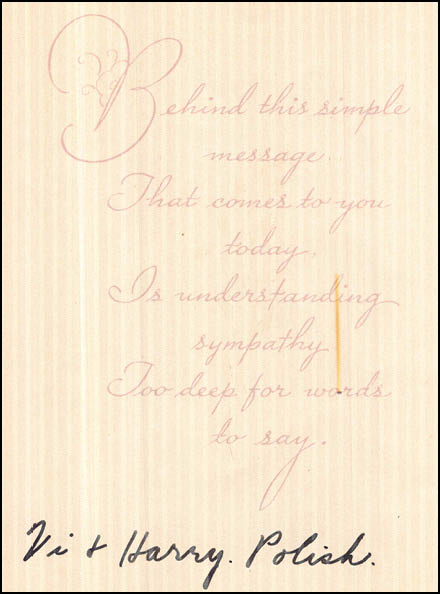 Behind this simple
message
That comes to you
today,
Is understanding
sympathy
Too deep for words
to say.
Vi + Harry. Polish.